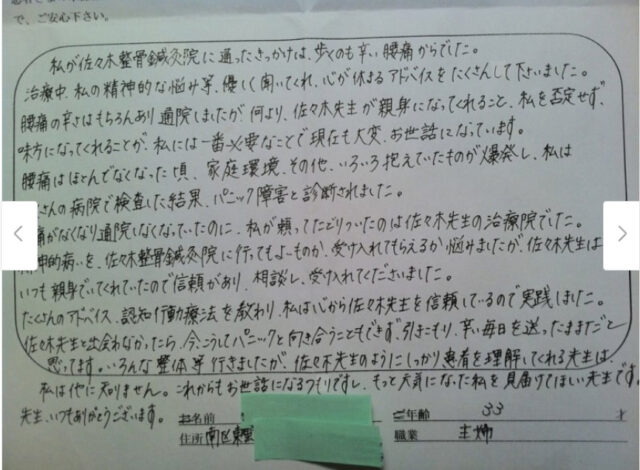 で、ご安心下さい。
私が佐々木整骨鍼灸院に通ったきっかけは、歩くのも辛い腰痛からでした。
治療中、私の精神的な悩み等、優しく聞いてくれ、心が休まるアドバイスをたくさんして下さいました。
腰痛の辛さはもちろんあり通院しましたが何より、佐々木先生が親身になってくれること、私を否定せず、
味方になってくれることが、私には一番必要なことで現在も大変、お世話になっています。
腰痛はほとんどなくなった頃、家庭環境、その他、いろいろ抱えていたものが爆発し、私は
さんの病院で検査した結果、パニック障害と診断されました。
痛がなくなり通院しなくなっていたのに、私が頼ってたどりついたのは佐々木先生の治療院でした。
神的病いを、佐々木整骨鍼灸院に行ってもよいものか、受け入れてもらえるか悩みましたが、佐々木先生は
いつも親身でいてくれていたので信頼があり、相談し、受け入れてくださいました。
たくさんのアドバイス、認知行動療法を教わり、私は心から佐々木先生を信頼しているので実践しました。
佐々木先生と出会わなかったら、今こうしてパニックと向き合うこともできず、引きこもり、辛い毎日を送ったままだと
思ってます。いろんな整体等行きましたが、佐々木先生のようにしっかり患者を理解してくれる先生は、
私は他に知りません。これからもお世話になるつもりですし、もっと元気になった私を見届けてほしい先生です。
先生、いつもありがとうございます。
お名前 ご年齢 33 才
住所 南区東 職業 主婦